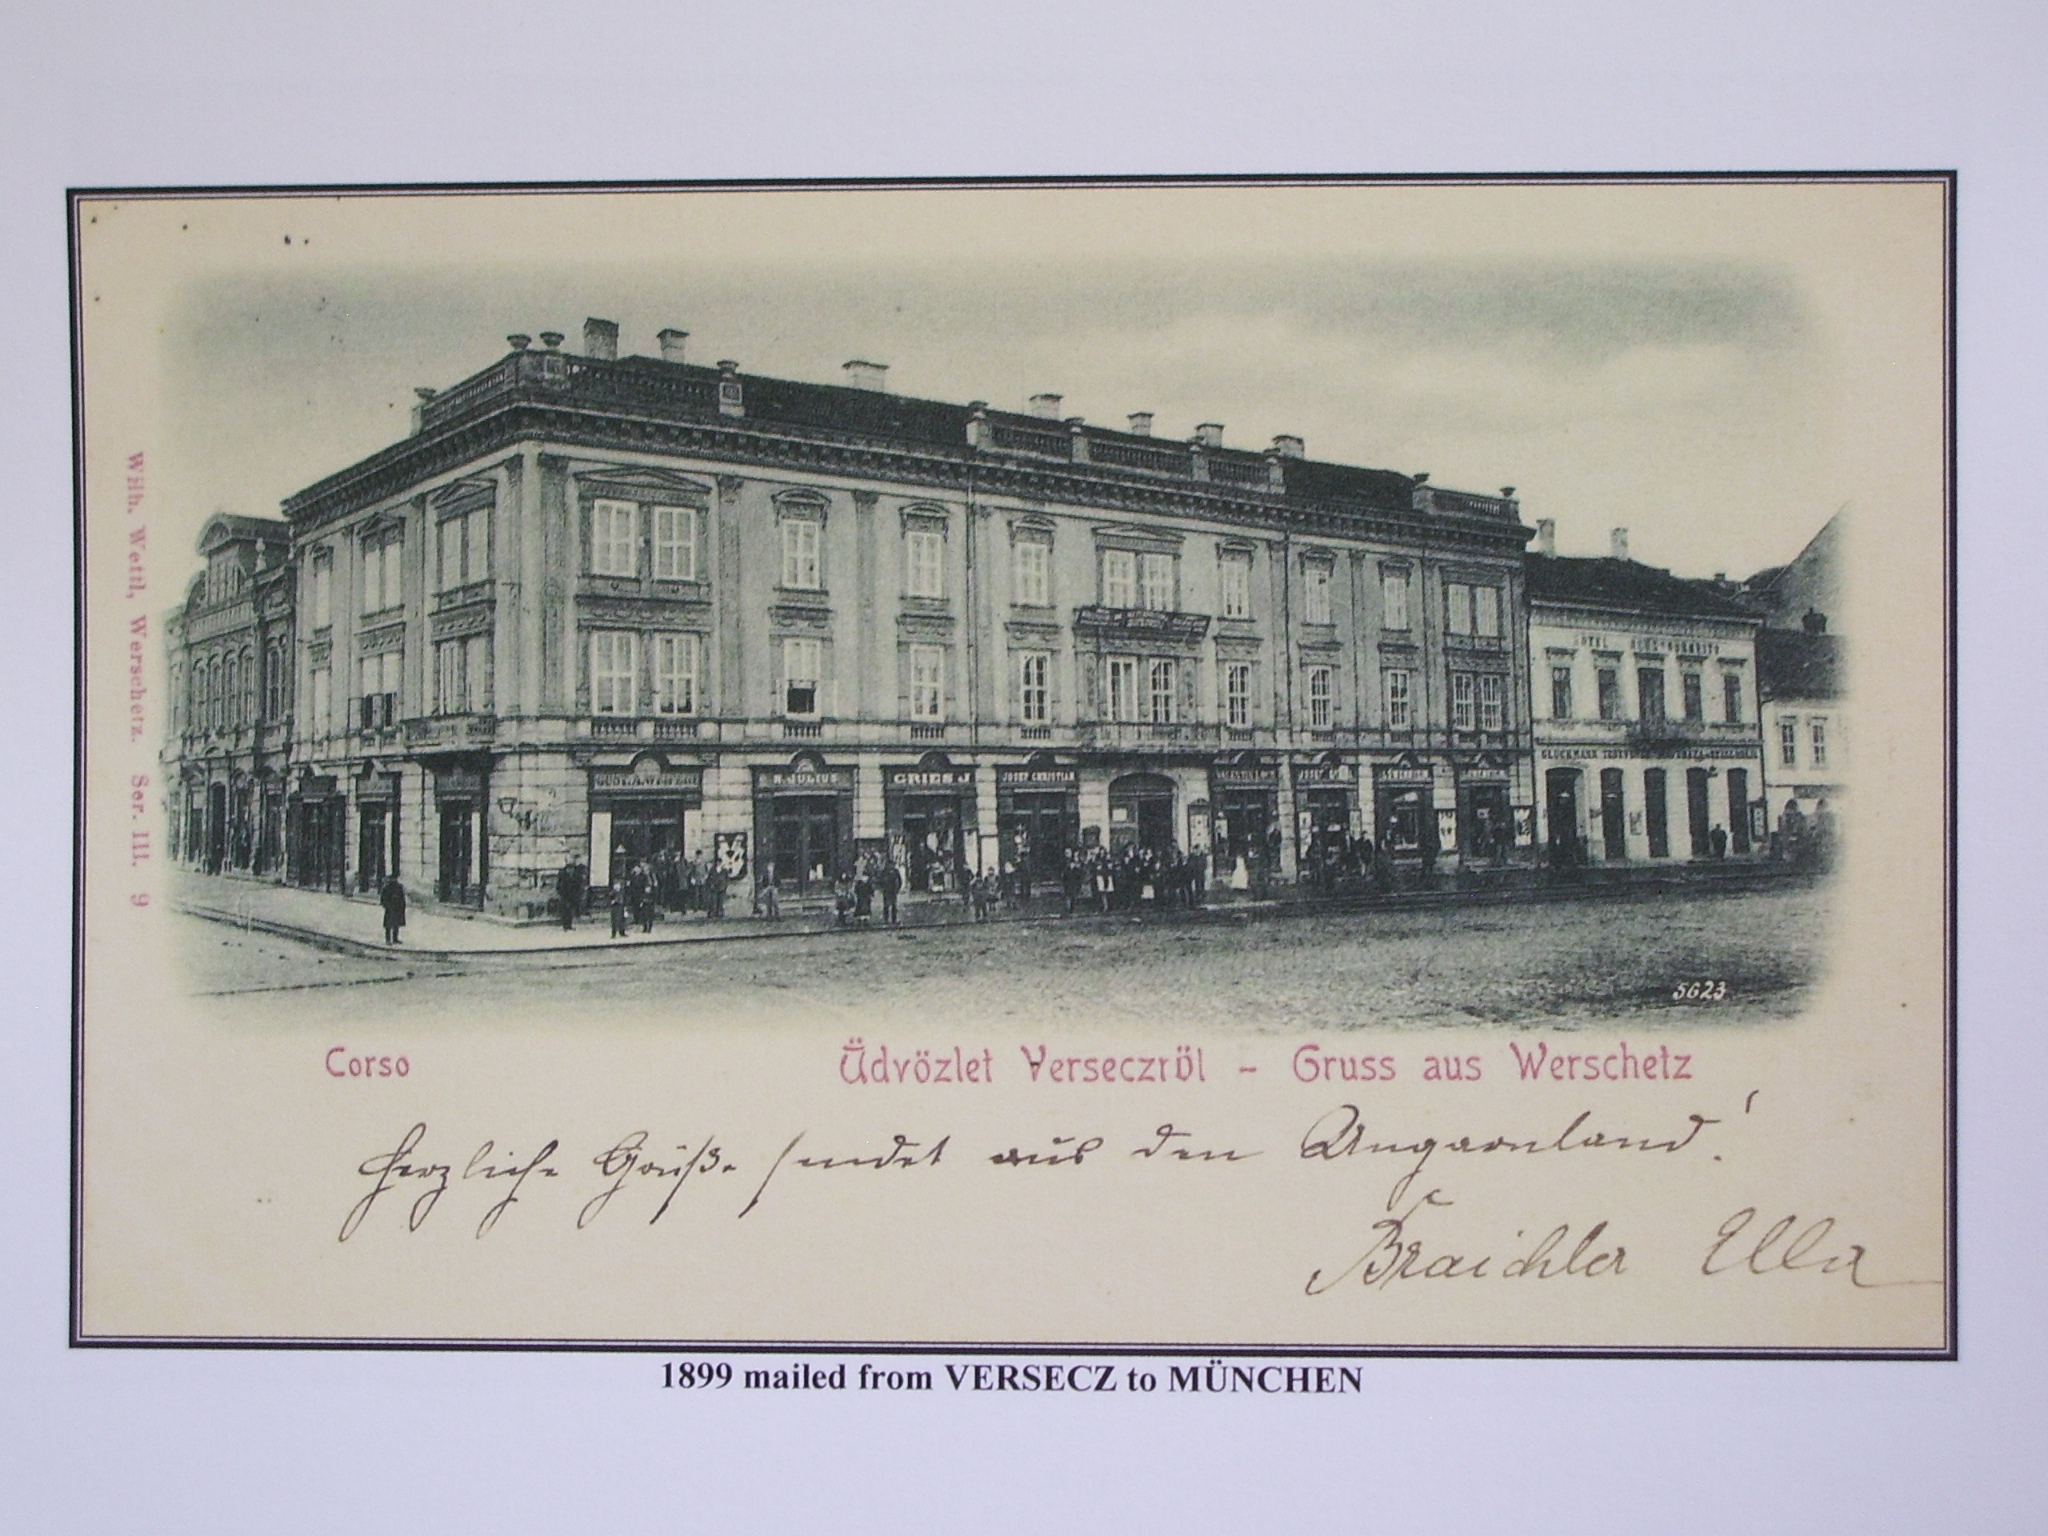 Wilh. Wettl, Werschetz. Ser. III. 9
R. JULIUS
GRIES J
JOSEF CHRISTIAN
JOSEF
HOTEL
GLÜCKMANN
5623
Corso
Üdvözlet Verseczről - Gruss aus Werschetz
Herzliche Grüße sendet aus den Ungarnland!
Braichler Ella
1899 mailed from VERSECZ to MÜNCHEN